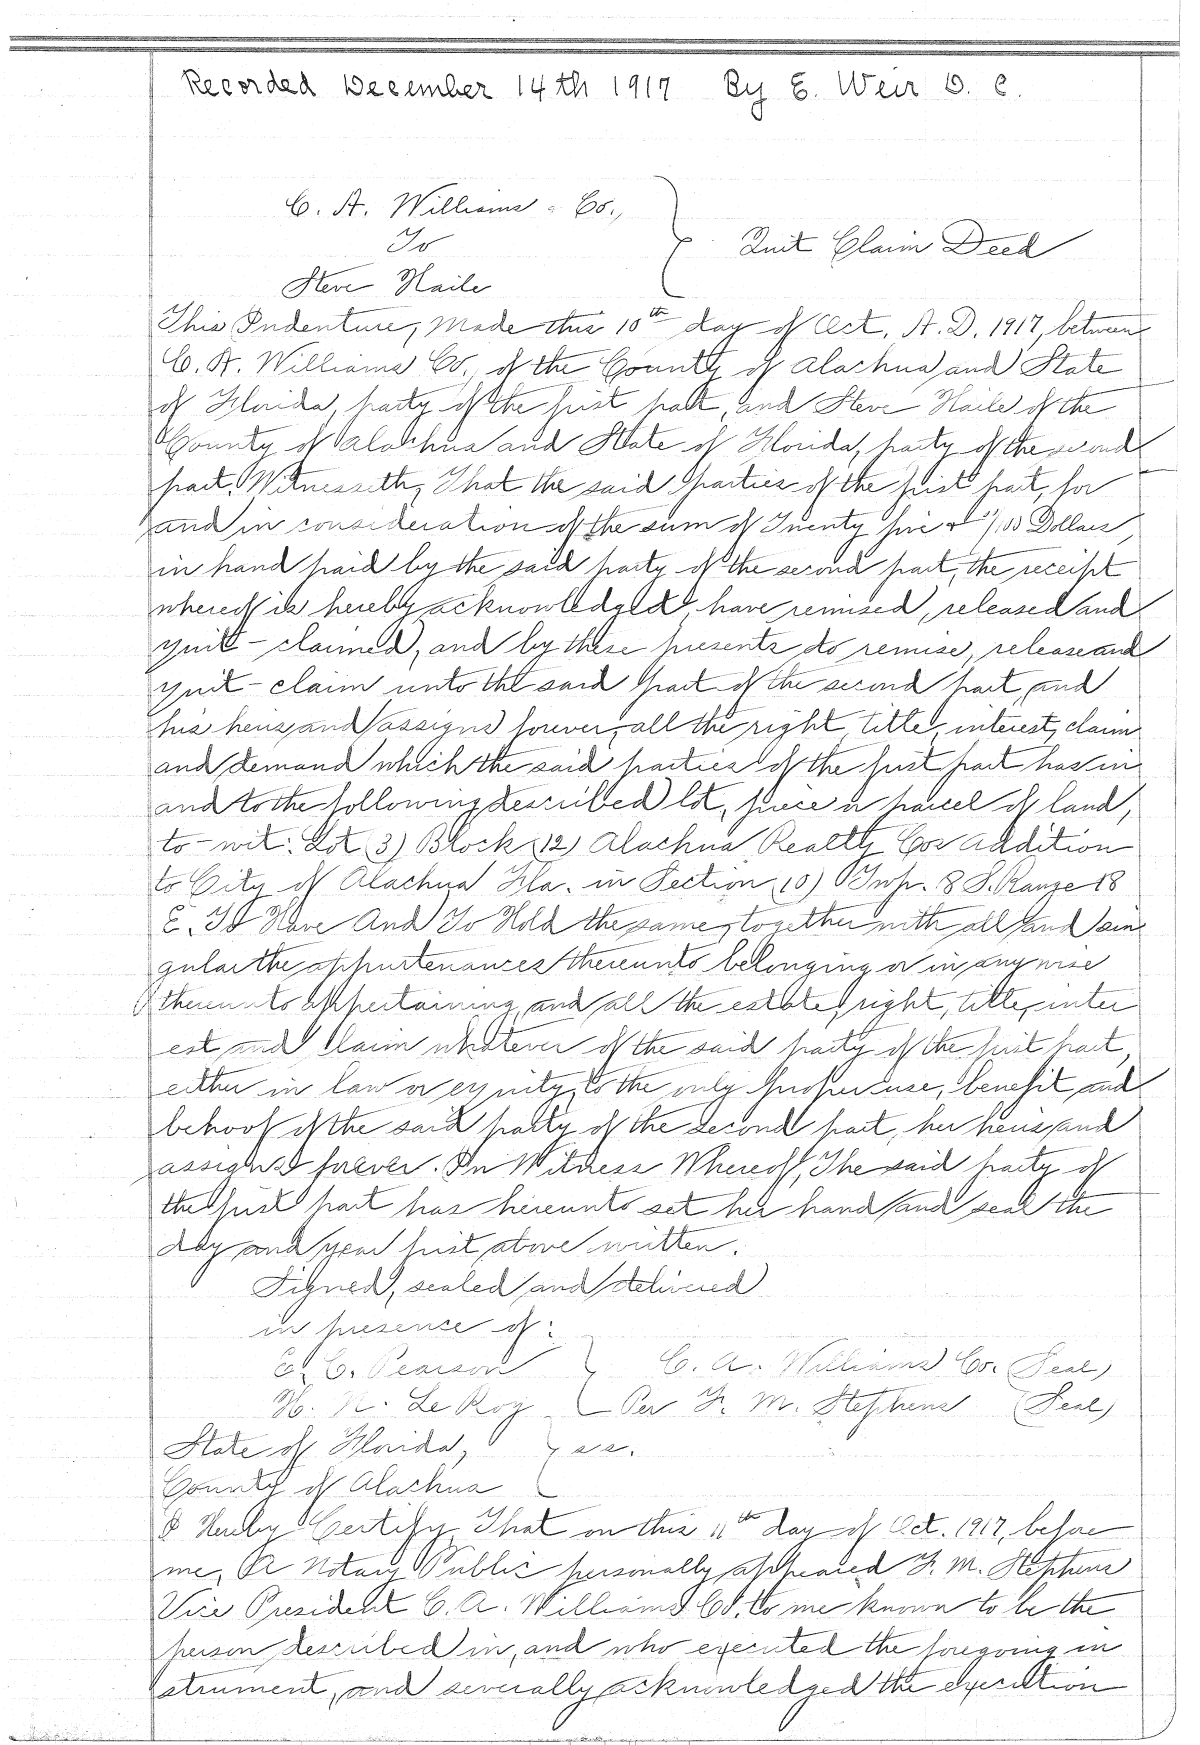 Recorded December 14th 1917 By E. Weir D. C.
C. A. Williams Co.,
To
Steve Haile
Quit Claim Deed
This Indenture, Made this 10th day of Oct. A. D. 1917, between
C. A. Williams Co., of the County of Alachua and State
of Florida, party of the first part, and Steve Haile of the
County of Alachua and State of Florida, party of the second
part. Witnesseth, That the said parties of the first part, for
and in consideration of the sum of Twenty five & /100 Dollars,
in hand paid by the said party of the second part, the receipt
whereof is hereby acknowledged, have remised, released and
quit-claimed, and by these presents do remise, release and
quit-claim unto the said part of the second part, and
his heirs and assigns forever, all the right, title, interest, claim
and demand which the said parties of the first part has in
and to the following described lot, piece or parcel of land,
to-wit: Lot (3) Block (12) Alachua Realty Cos Addition
to City of Alachua Fla. in Section (10) Tnp. 8 S. Range 18
E. To Have And To Hold the same, together with all and sin
gular the appurtenances thereunto belonging or in anywise
thereunto appertaining, and all the estate, right, title, inter
est and claim whatever of the said party of the first part,
either in law or equity, to the only proper use, benefit and
behoof of the said party of the second part, her heirs and
assigns forever. In Witness Whereof, The said party of
the first part has hereunto set her hand and seal the
day and year first above written.
Signed, sealed and delivered
in presence of:
C. C. Pearson C. A. Williams Co. (Seal)
H. N. Le Roy Per F. M. Stephens (Seal)
State of Florida, ss.
County of Alachua
I Hereby Certify, That on this 11th day of Oct. 1917, before
me, A Notary Public personally appeared F. M. Stephens
Vice President C. A. Williams Co. to me known to be the
person described in, and who executed the foregoing in
strument, and severally acknowledged the execution